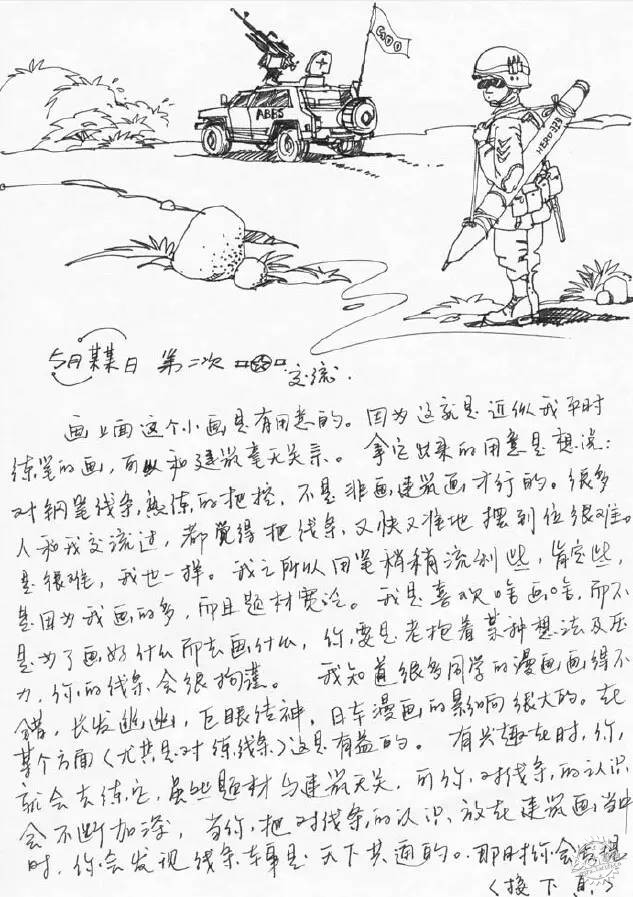 GOO
ABBS
HERO-329
5月某某日 第二次 交流.
画上面这个小画是有用意的。因为这就是近似我平时
练笔的画,可以和建筑毫无关系。拿它出来的用意是想说:
对钢笔线条,熟练的把控,不是非画建筑画才行的。很多
人和我交流过,都觉得把线条,又快又准地摆到位很难。
是很难,我也一样。我之所以用笔稍稍流利些,肯定些,
是因为我画的多,而且题材宽泛。我是喜欢啥画啥,而不
是为了画好什么而去画什么,你要是老抱着某种想法及压
力,你的线条会很拘谨。 我知道很多同学的漫画画得不
错,长发幽幽,巨眼结神,日本漫画的影响很大的。在
某个方面(尤其是对练线条)这是有益的。有兴趣在时,你,
就会去练它,虽然题材与建筑无关,可你,对线条,的认识
会不断加深,当你,把对线条,的认识,放在建筑画,当中
时,你会发现线条,本事是天下共通的。那时你会发现
(接下页)